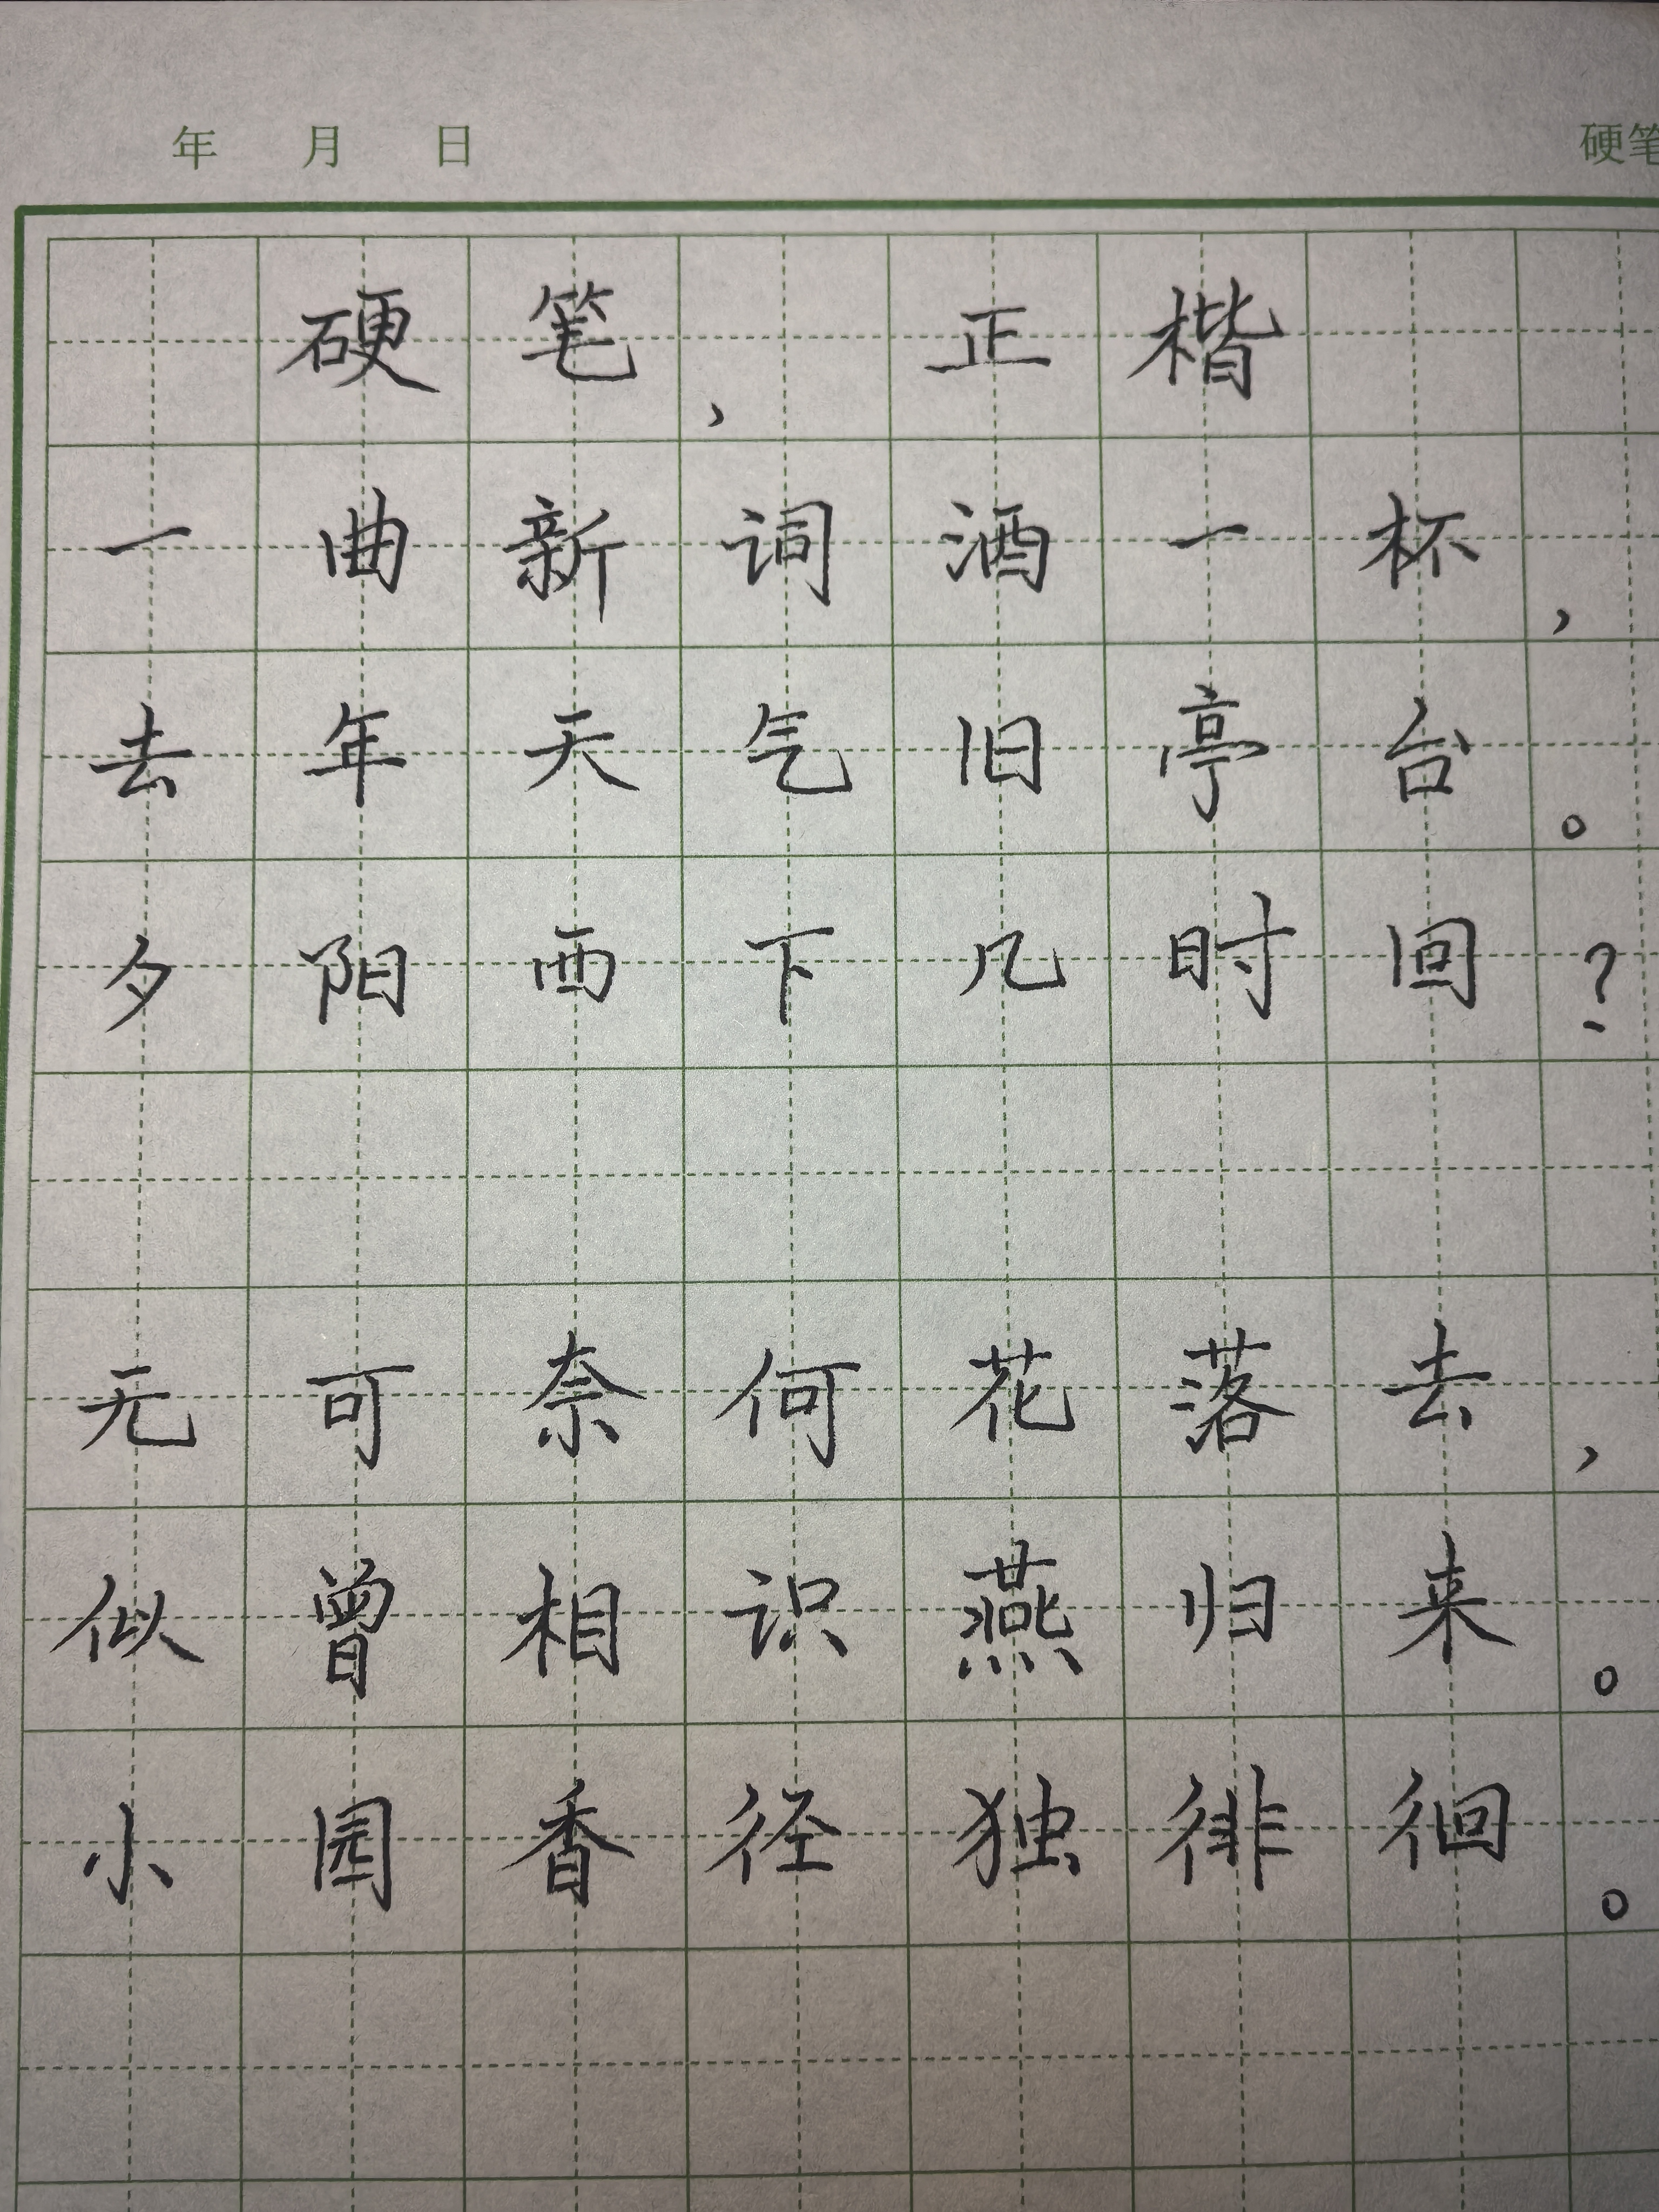 年 月 日 硬笔
硬笔，正楷
一曲新词酒一杯，
去年天气旧亭台。
夕阳西下几时回？
无可奈何花落去，
似曾相识燕归来。
小园香径独徘徊。